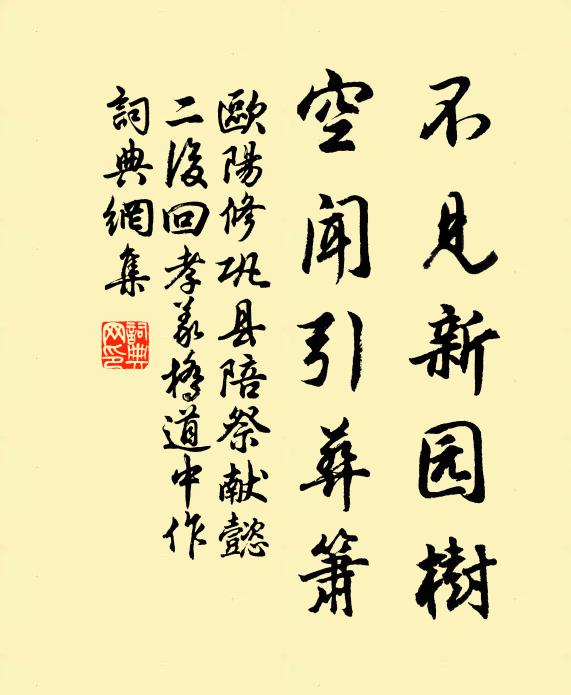 不见新园樹
空闻引葬箫
歐陽修巩县陪祭献懿
二後回孝义橋道中作
詞典網集
詞典网印